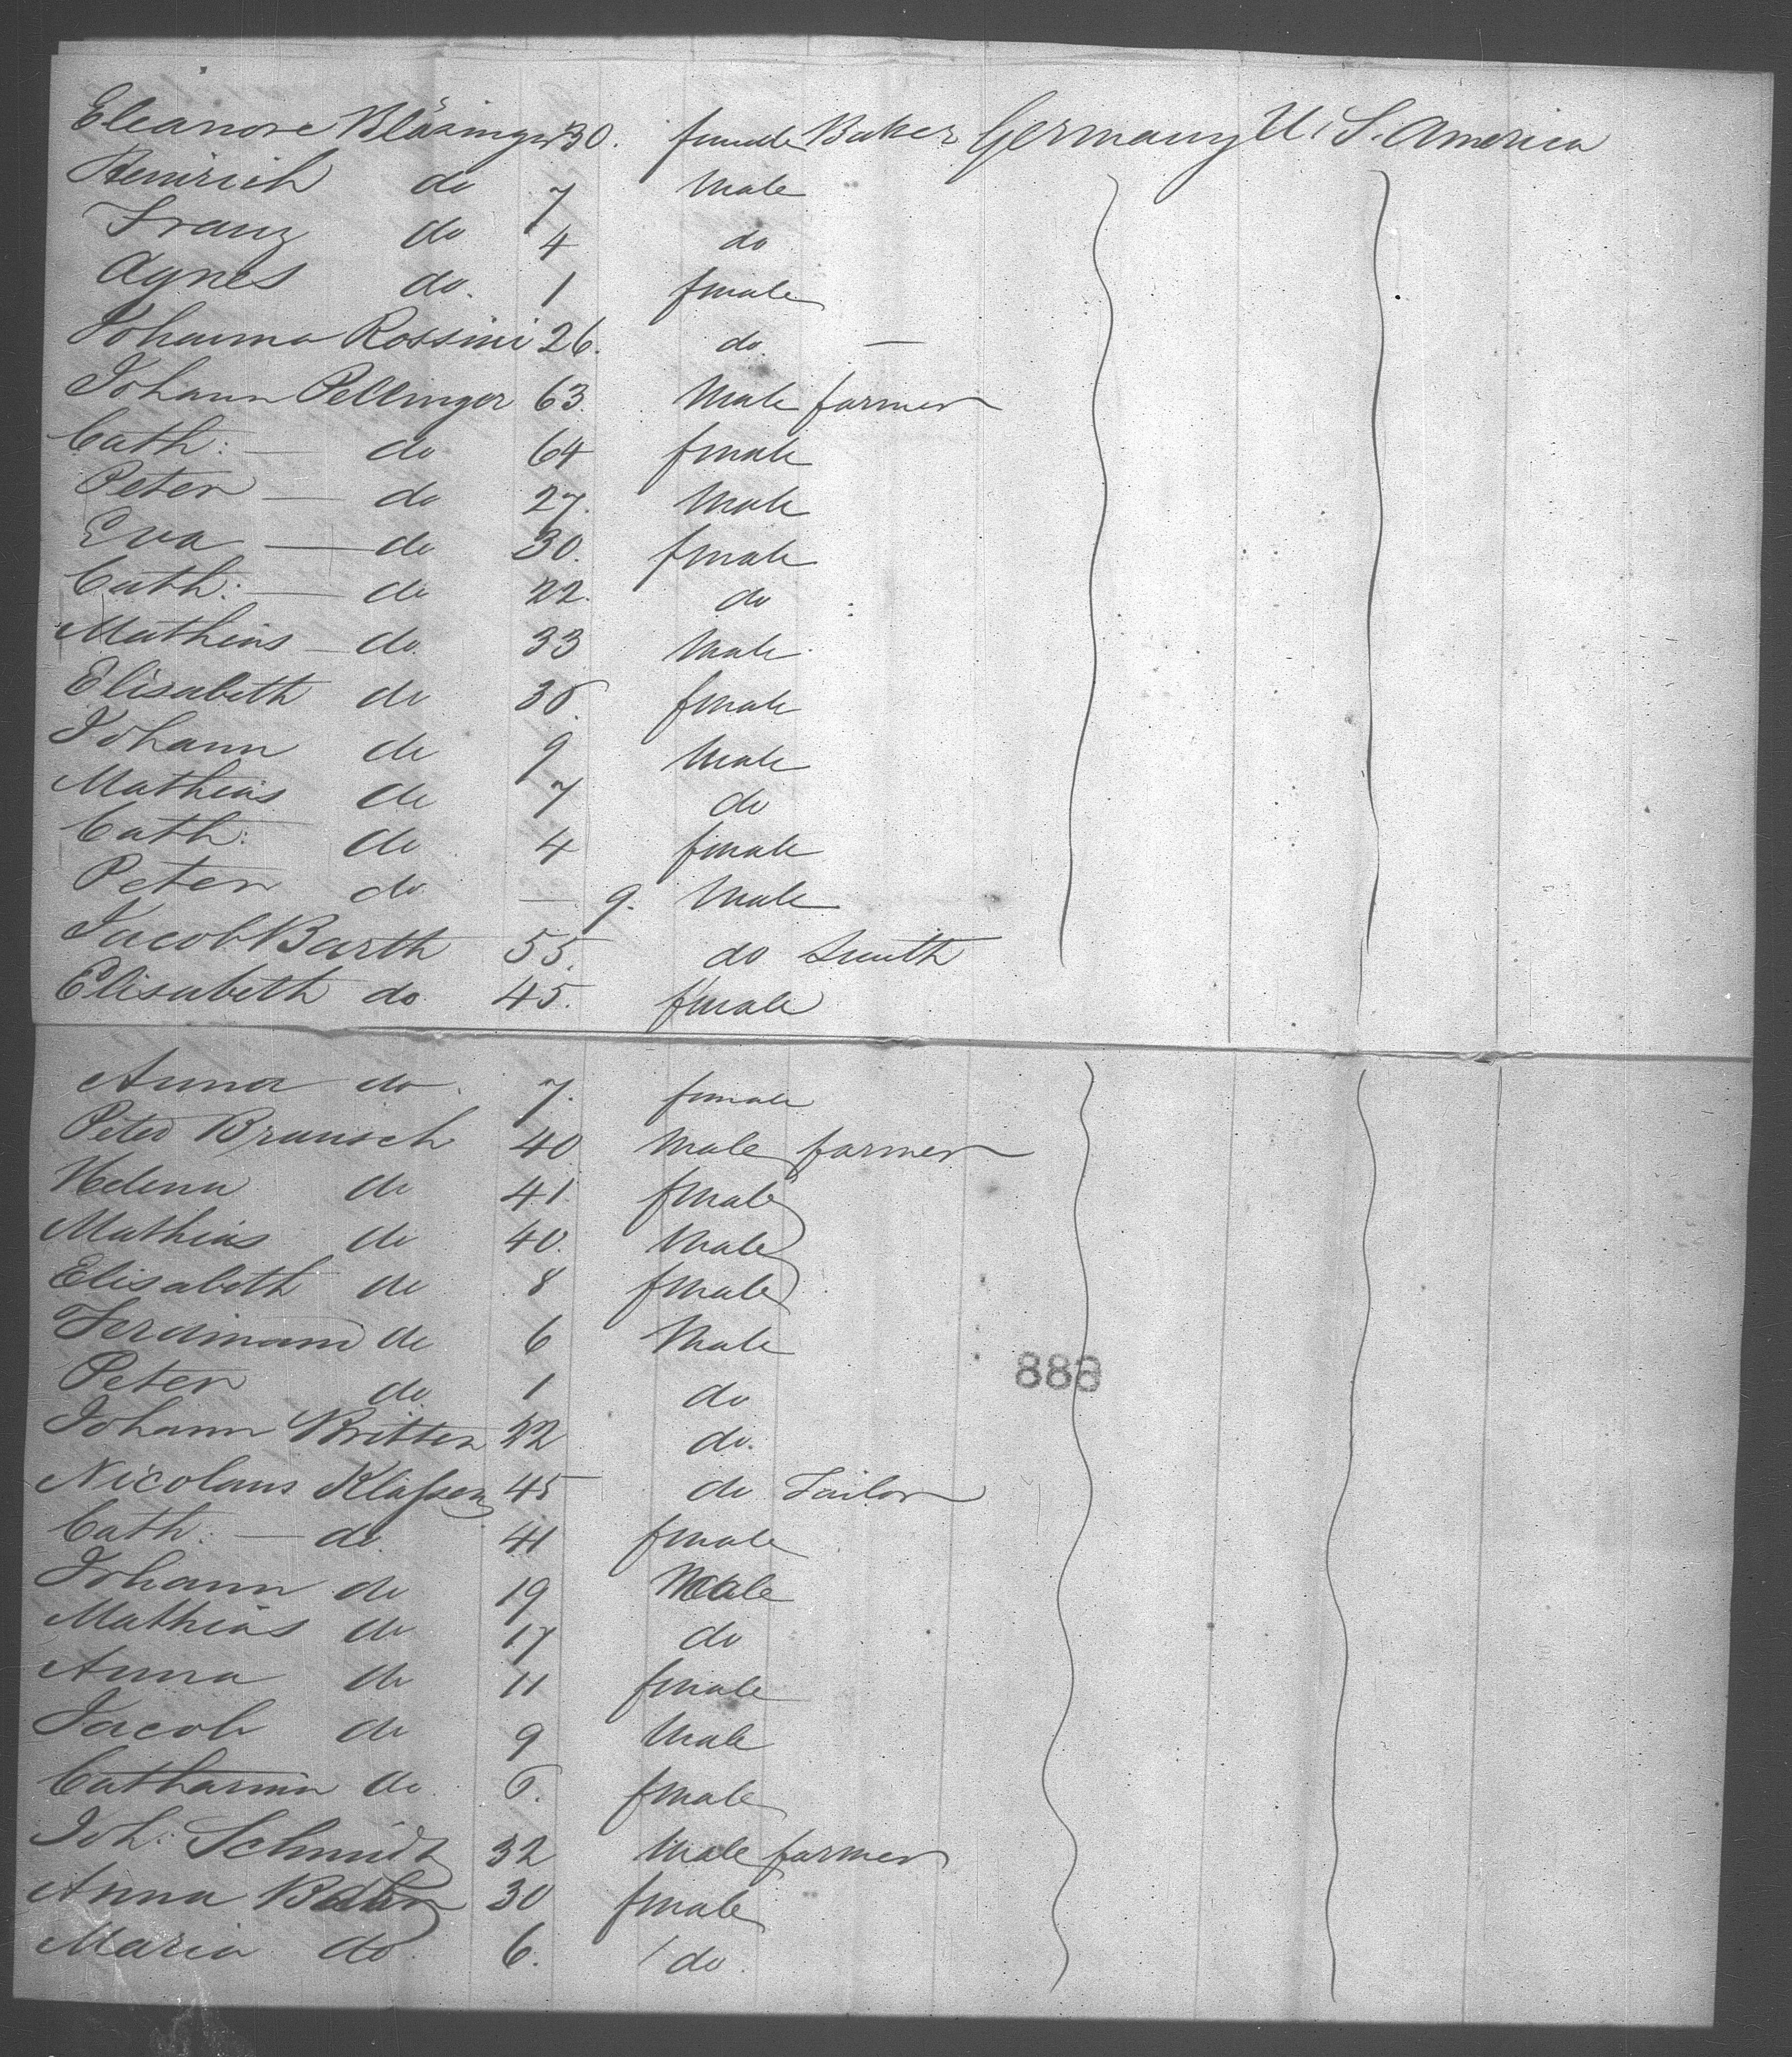 Eleanore Bläsinger 30. female Baker Germany U. S. America
Heinrich do 7 Male
Franz do 4 do
Agnes do. 1 female
Johanna Rossini 26. do. —
Johann Pellinger 63. Male farmer
Cath: — do 64 female
Peter — do 27. Male
Eva — do 30. female
Cath: — do 22. do
Mathias — do. 33 Male
Elisabeth do female
Johann do 9 Male
Mathias do 7 do
Cath: do 4 female
Peter do — 9. Male
Jacob Barth 55. do Smith
Elisabeth do. 45. female
Anna do. 7. female
Peter Braunsch 40 Male farmer
Helena do 41. female
Mathias do 40. Male
Elisabeth do 8 female
Ferdinand do 6 Male
Peter do. 1 do
Johann Britten 22 do.
888
Nicolaus Klassen 45 do Tailor
Cath: — do. 41 female
Johann do 19 Male
Mathias do 17 do
Anna do 11 female
Jacob do 9 Male
Catharina do. female
Joh: Schmidt 32 Male farmer
Anna 30 female
Maria do. 6. do.